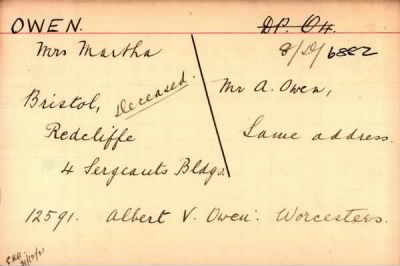 OWEN.
DP. O4.
8/D/6882
Mrs Martha
Deceased.
Bristol,
Redcliffe
4 Sergeants Bldgs.
Mr A. Owen,
Same address.
12591. Albert V. Owen. Worcesters.